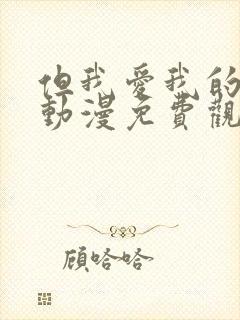 但我愛我的
動漫免費觀
顧哈哈